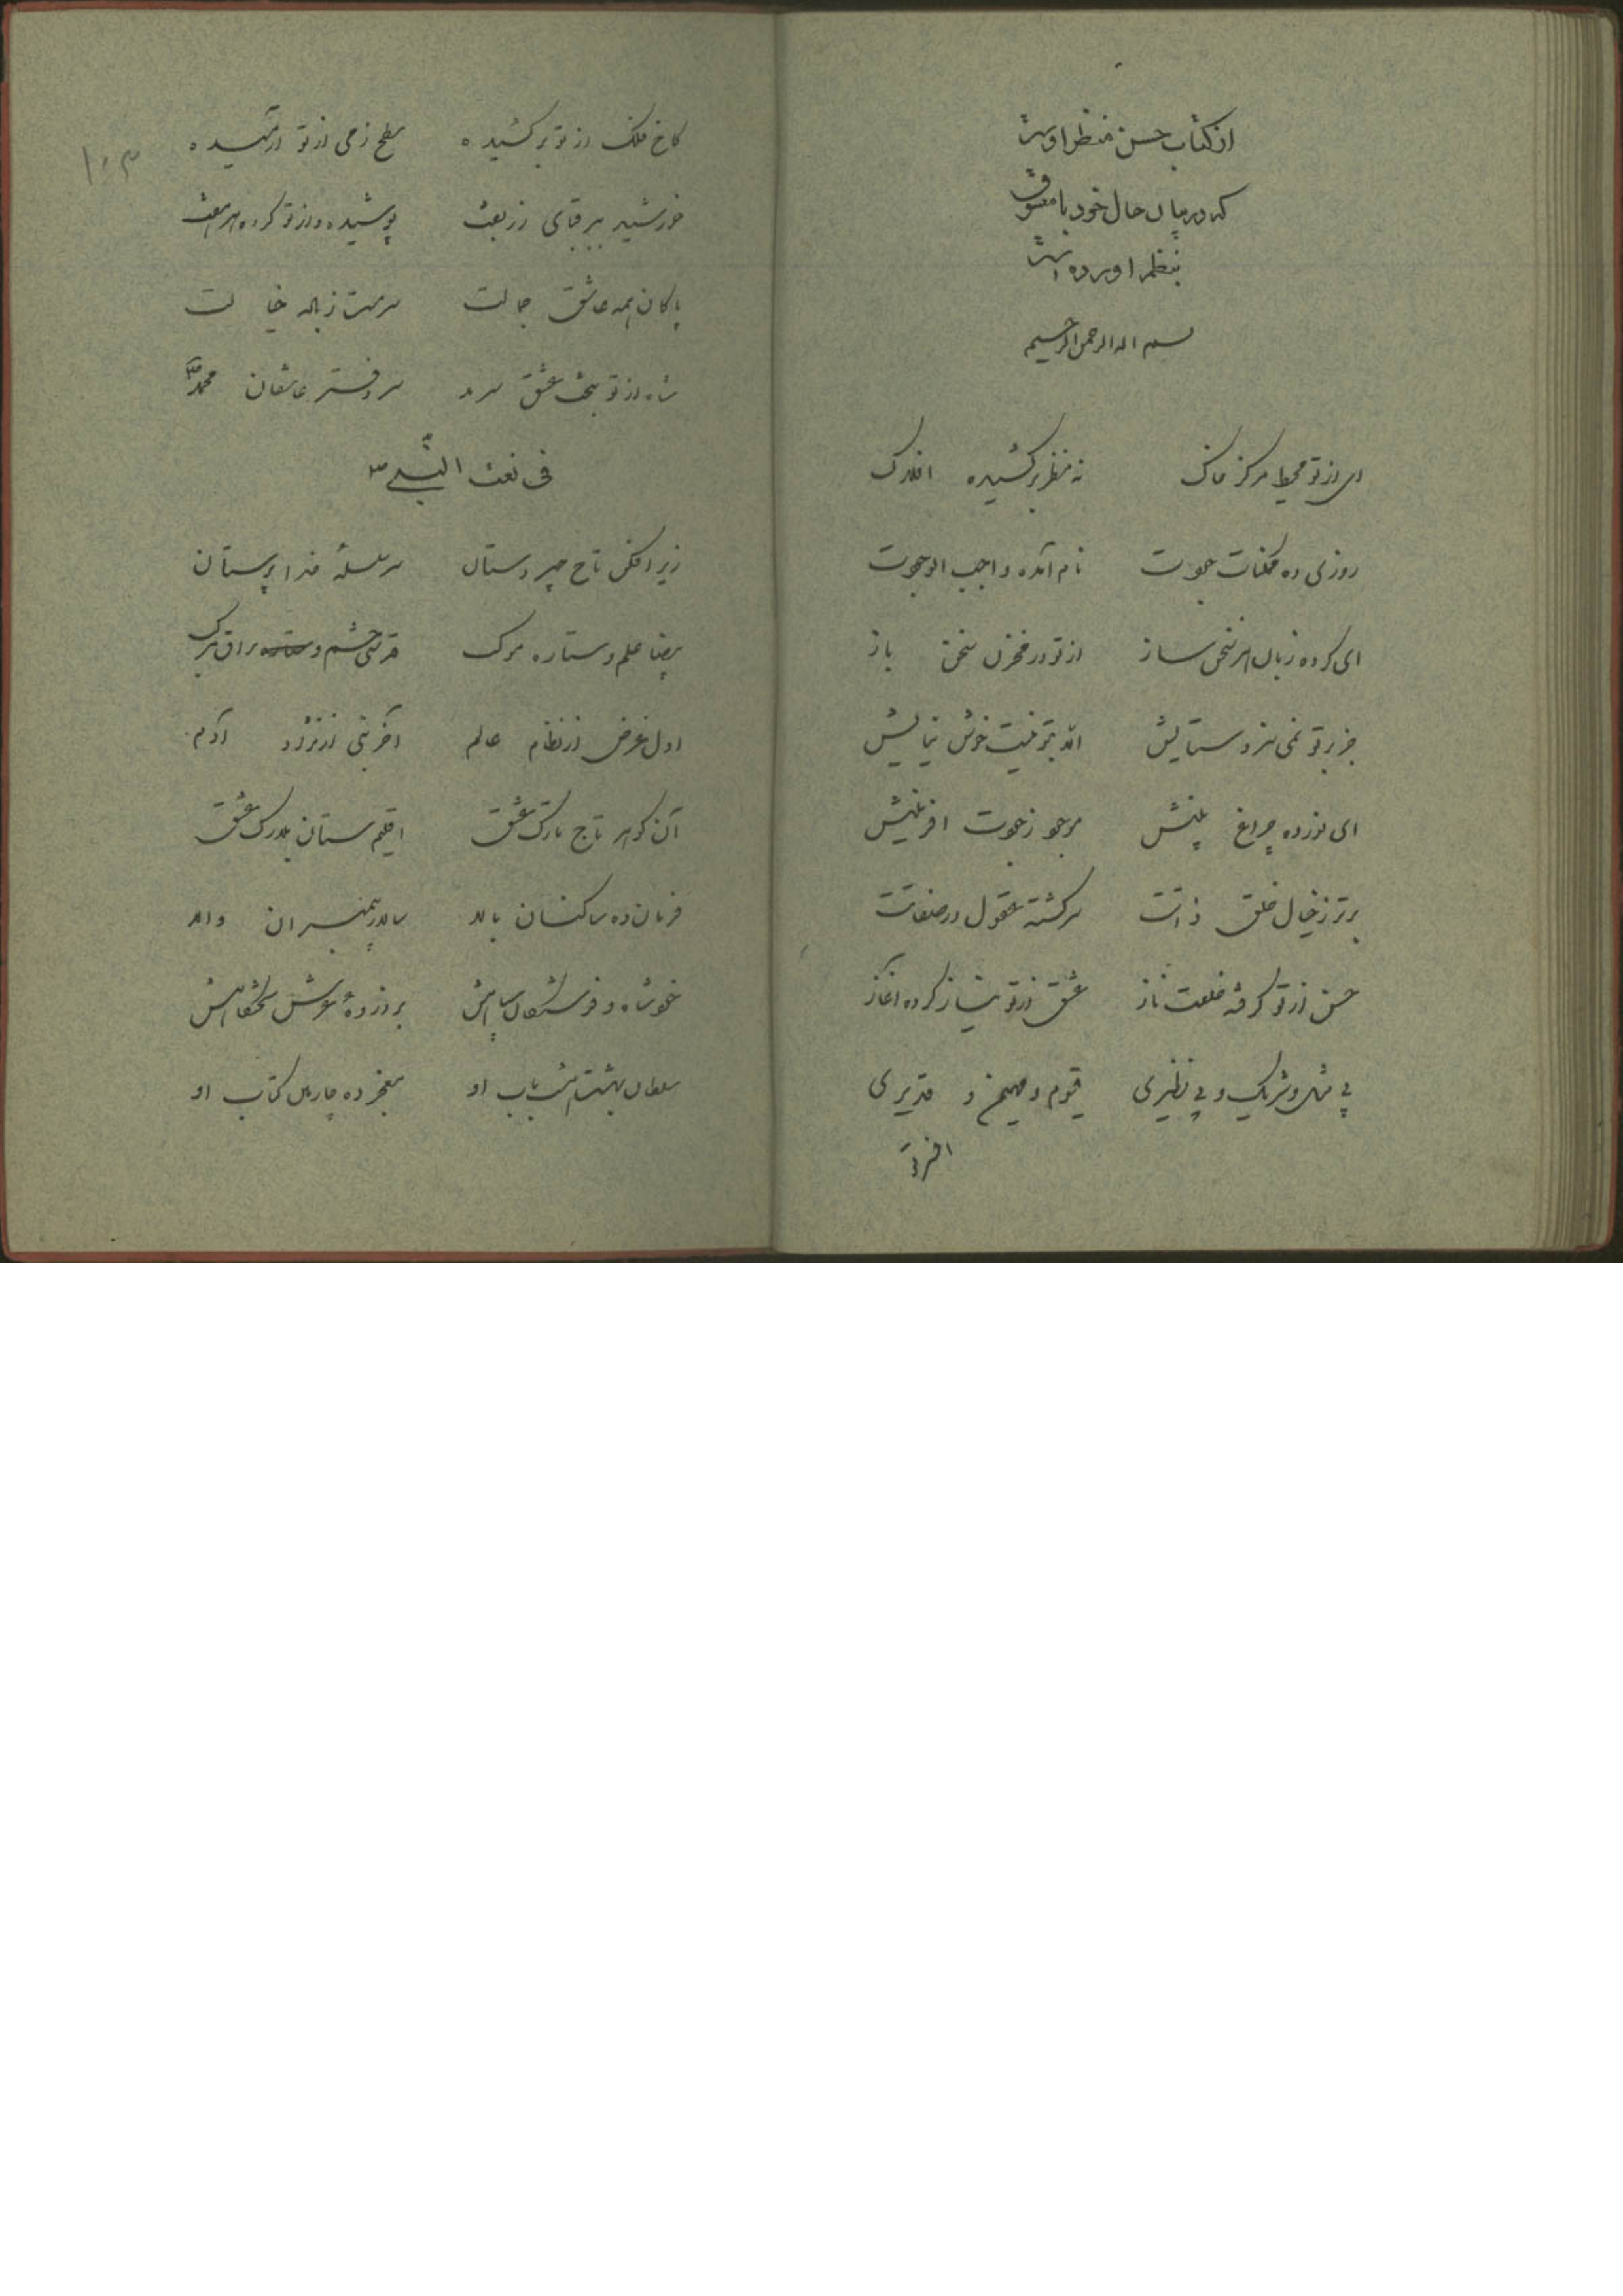 از کتاب حسن منظر اوست
که در بیان حال خود با معشوق
بنظم اورده است
بسم اله الرحمن الرحیم
ای از تو محیط مرکز خاک نه منظر برکشیده افلاک
روزی ده ممکنات جودت نام آمده واجب الوجودت
ای کرده زبان سخن ساز از تو در مخزن سخن باز
جز بر تو نمی سزد ستایش
ای نورده چراغ بینش موجود ز جودت افرینش
برتر ز خیال خلق ذاتت سرگشته عقول در صفاتت
حسن از تو گرفته خلعت ناز عشق از تو نیاز کرده اغاز
بی مثل و شریک و بی نظیری قیوم و مهیمن و قدیری
۱۰۳
کاخ فلک از تو برکشیده سطح زمی از تو ارمیده
خورشید قبای زربفت پوشیده و از تو کرده
پاکان همه عاشق جمالت سرمست ز باله خیالت
شاه از تو بتخت عشق سرمد سر دفتر عاشقان محمد ص
فی نعت النبی ص
زیر افکن تاج چیر دستان سر سلسله خدا پرستان
بیضا علم و ستاره موکب چشم و براق مرکب
اول غرض از نظام عالم آخر نبی از نژاد آدم
آن گوهر تاج تارک عشق اقلیم ستان بلارک عشق
فرمان ده ساکنان بالا سالار پیمبران والا
خود شاه و فرشتگان سپاهش
سلطان بهشت باب او معجز ده کتاب او